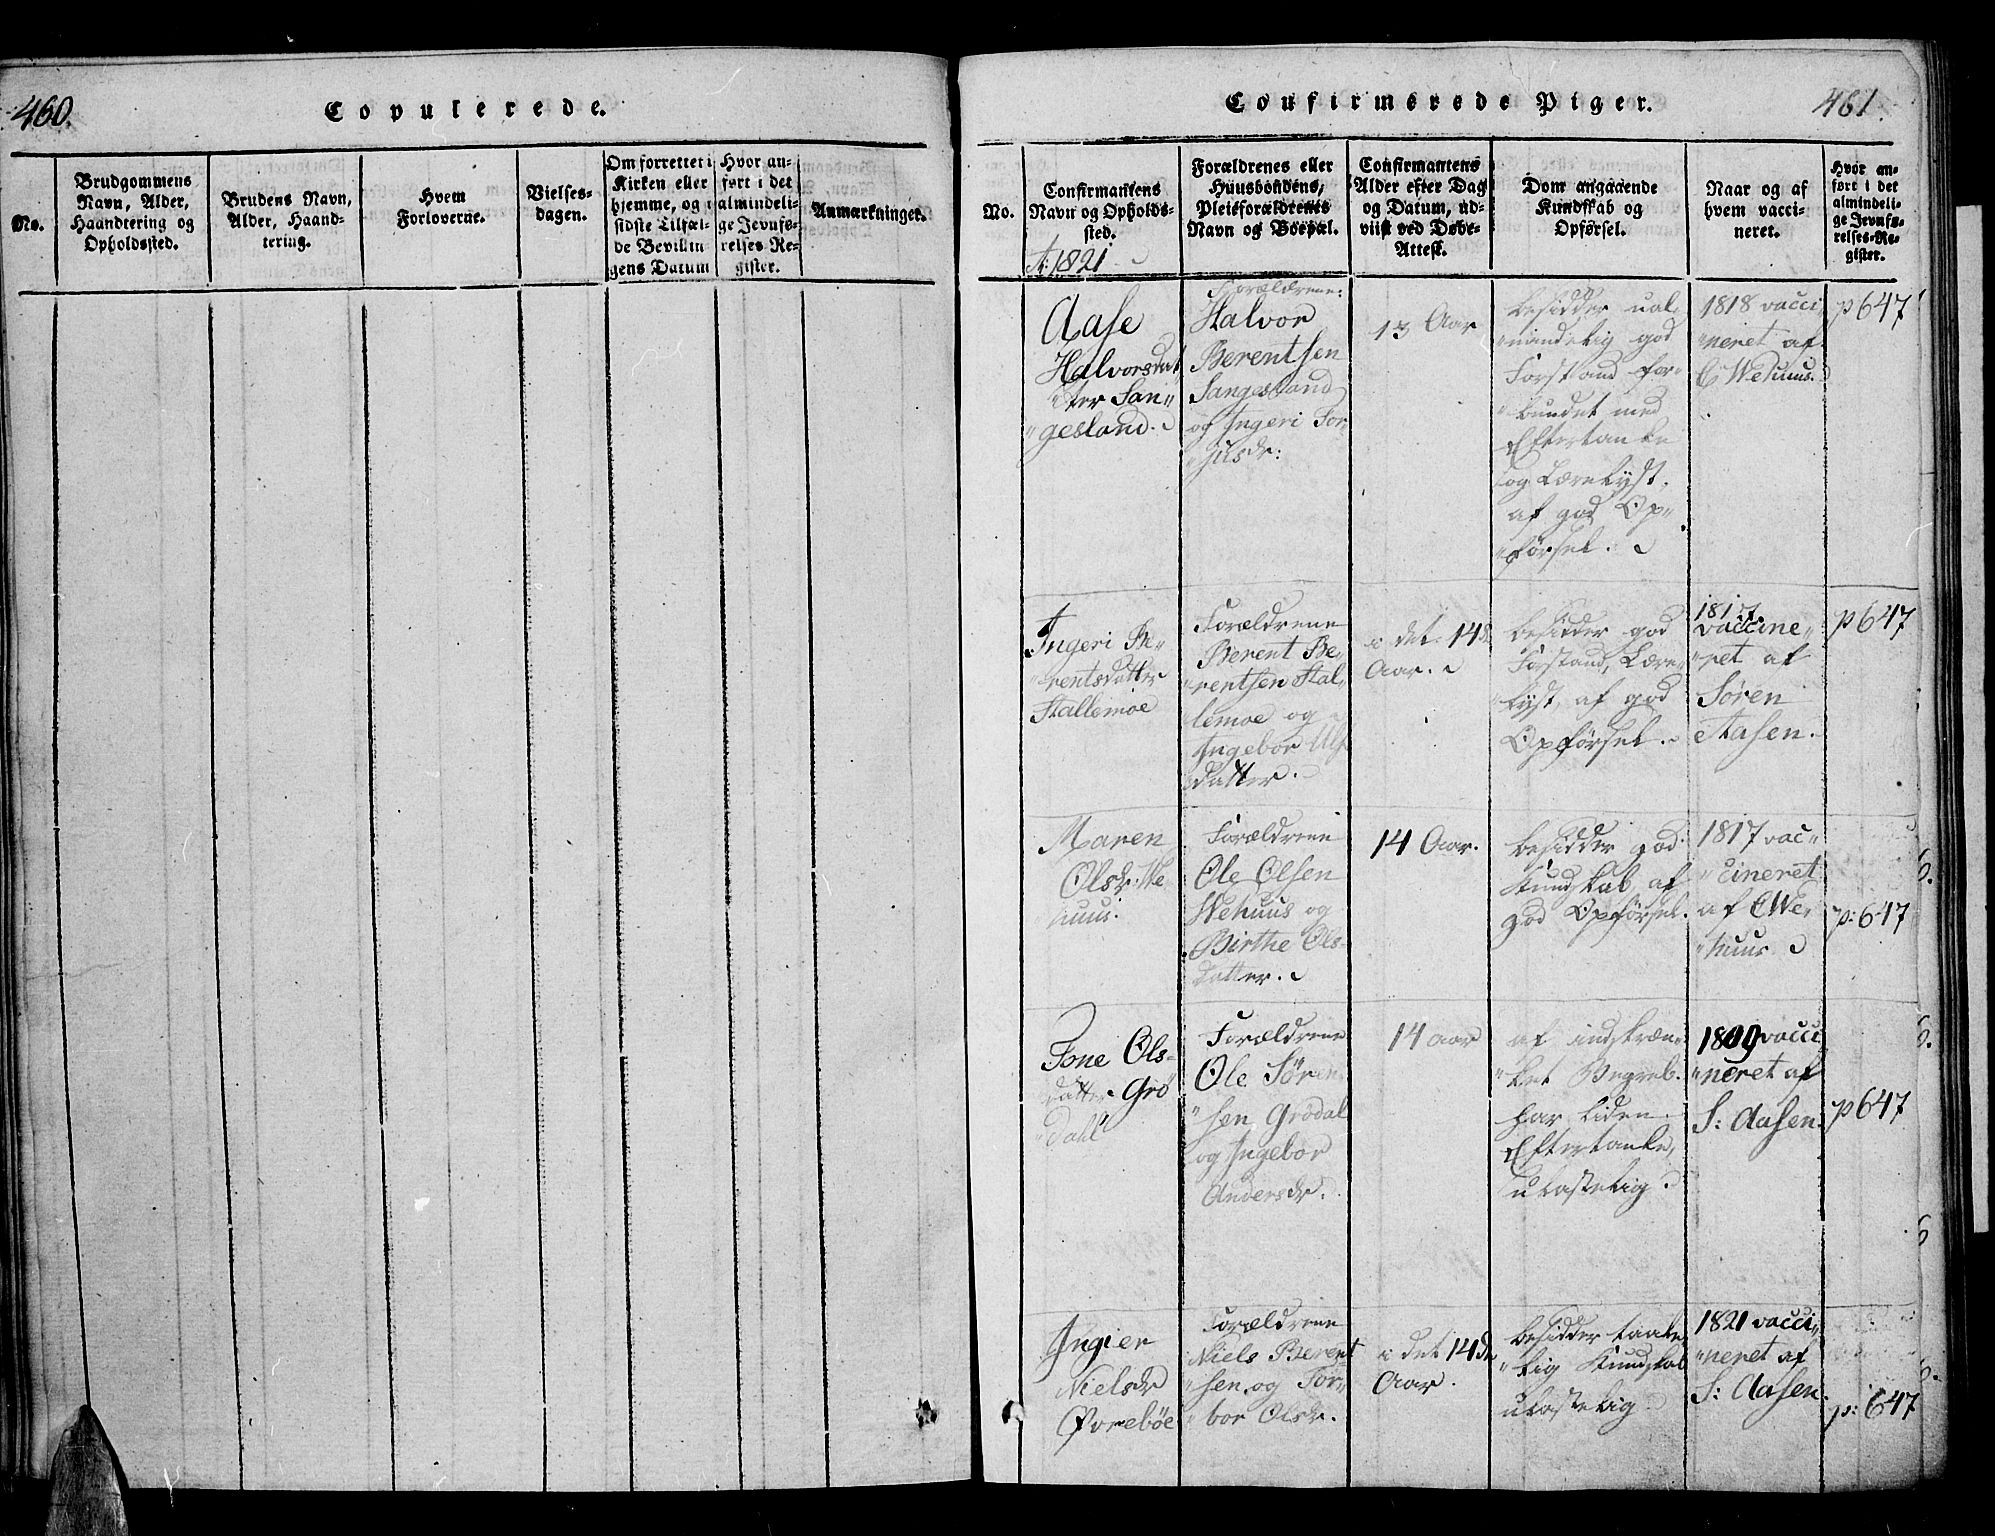 460.
Copulerede.
No.
Brudgommens
Navn, Alder,
Haandtering og
Opholdssted.
Brudens Navn,
Alder, Haand-
tering.
Hvem
Forloverne.
Vielses-
dagen.
Om forrettet i
Kirken eller
hjemme, og i
sidste Tilfæl-
de Bevillin
gens Datum
Hvor an-
ført i det
almindeli-
ge Jevnfø-
relses-Re-
gister.
Anmærkninger.
Confirmerede Piger.
461.
No.
Confirmantens
Navn og Opholds-
sted.
A: 1821
Forældrenes eller
Huusbondens,
Pleieforældrenes
Navn og Boepæl.
Confirmantens
Alder efter Dag
og Datum, ud-
viist ved Døbe-
Attest.
Dom angaaende
Kundskab og
Opførsel.
Naar og af
hvem vacci-
neret.
Hvor an-
ført i det
almindeli-
ge Jevnfø-
relses-Re-
gister.
Aase
Halvorsdat
ter San"
"gesland.
Forældrene:
Halvor
Berentsen
Sangesland
og Ingeri Tor
"jusdr:
13 Aar
besidder ual,
"mindelig god
Forstand for-
"bundet med
Eftertanke
og Lærelyst.
af god Op"
"førsel.
1818 vacci
"neret af
C Wehuus.
p 647
Ingeri Be-
"rentsdatter
Stallemoe
Forældrene
Berent Be,
"rentsen Stal,
lemoe og
Ingebor Ulfs
datter.
i det 14de
Aar.
besidder god
Forstand, Lære-
"lyst, af god
Opførsel.
1817.
vaccine"
"ret af
Søren
Aasen.
p 647
Maren
Olsdr. We
huus.
Forældrene
Ole Olsen
Wehuus og
Birthe Ols-
datter.
14 Aar.
besidder god
Kundskab, af
god Opførsel.
1817 vac"
"cineret
af C We,
"huus
p: 647
Tone Ols-
datter Grö
"dahl
Forældrene
Ole Sören
"sen Grødal
og Ingebor
Andersdr.
14 aar
af indskræn,
"ket Begreb.
har liden
Eftertanke,
ulastelig.
1809 vacci
"neret af
S: Aasen.
p 647
Ingier
Nielsdr
Øvrebøe
Forældrene
Niels Berent
"sen og Tor"
"bor Olsdr.
i det 14de
Aar.
besidder taale
"lig Kundskab
ulastelig
1821 vacci"
"neret af
S: Aasen.
p: 647